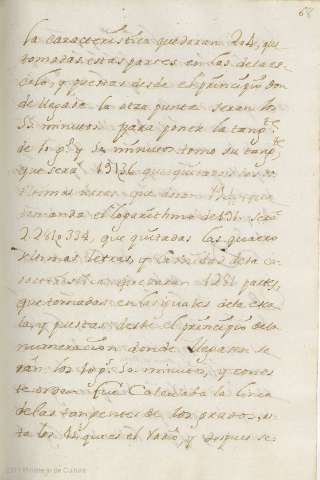 68
la caracteristica quedaran 204, que
tomadas estas partes en las de la es-
cala, y puestas desde el principio don
de llegase la otra punta seran los
minutos para poner la tang.te
de 10 g.s y 50 minutos tomo su tang.te
que sera 19136 quitaran los dos
ultimas letras que
demanda el logarithmo de 191 sera
2.2810334, que quitadas las quatro
ultimas letras, y la unidad de la ca
racteristica quedaran 1281 partes,
que tomadas en las yguales de la esca
la y puestas desde el principio de la
numeracion donde llegasen se
ran los 10 g.s 50 minutos, y con es
te orden fue Calculada la linea
de las tangentes de los grados, as
ta los 45 que es el Radio y despues se